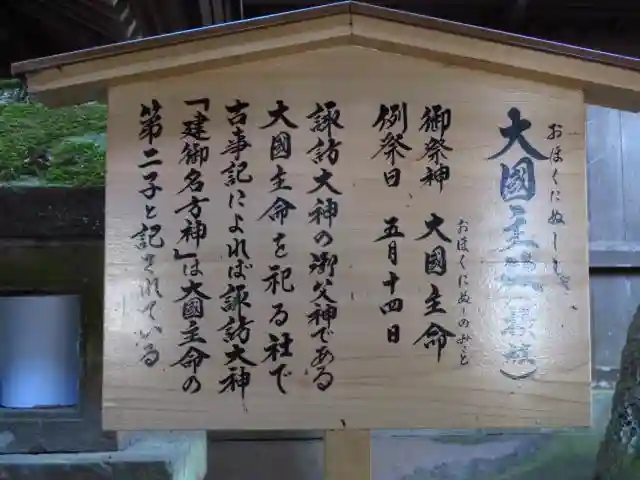 大國主社
おほくにぬししゃ
御祭神　大國主命
おほくにぬしのみこと
例祭日　五月十四日
諏訪大神の御父神である
大國主命を祀る社で
古事記によれば諏訪大神
「建御名方神」は大國主命の
第二子と記されている